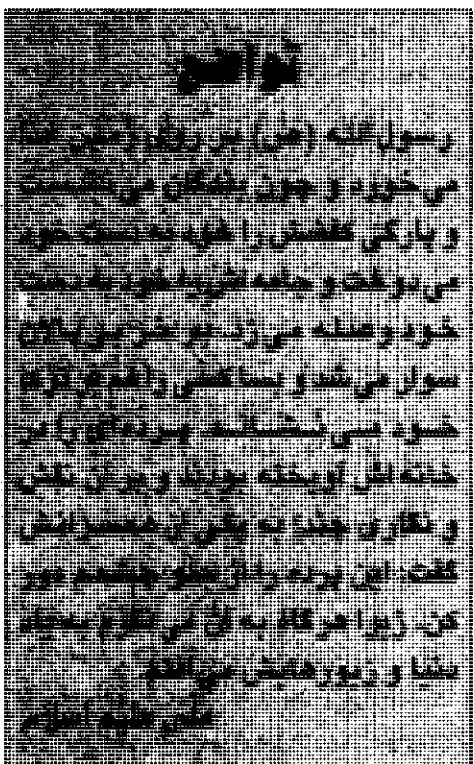 تواضع
رسول الله (ص) بر روی زمین غذا
می‌خورد و چون بندگان می‌نشست
و پارگی کفشش را خود به دست خود
می‌دوخت و جامه اش را خود به دست
خود وصله می‌زد. بر خر بی پالان
سوار می‌شد و بسا کسی را هم بر ترک
خود می‌نشاند. پرده‌ای را بر
خانه اش آویخته بودند و بر آن نقش
و نگاری چند؛ به یکی از همسرانش
گفت: این پرده را از جلو چشمم دور
کن. زیرا هرگاه به آن می‌نگرم به یاد
دنیا و زیورهایش می‌افتم
علی علیه السلام